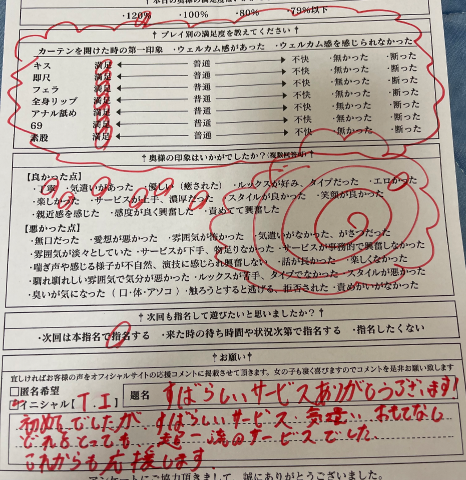 ・120%　・100%　・80%　・79%以下
↑ プレイ別の満足度を教えてください ↑
カーテンを開けた時の第一印象 ・ウェルカム感があった ・ウェルカム感を感じられなかった
キス 満足 普通 不快 ・無かった ・断った
即尺 満足 普通 不快 ・無かった ・断った
フェラ 満足 普通 不快 ・無かった ・断った
全身リップ 満足 普通 不快 ・無かった ・断った
アナル舐め 満足 普通 不快 ・無かった ・断った
69 満足 普通 不快 ・無かった ・断った
素股 満足 普通 不快 ・無かった ・断った
↑ 奥様の印象はいかがでしたか?(複数回答可) ↑
【良かった点】
・丁寧 ・気遣いがあった ・優しい(癒された) ・ルックスが好み、タイプだった ・エロかった
・楽しかった ・サービスが上手、濃厚だった ・スタイルが良かった ・笑顔が良かった
・親近感を感じた ・感度が良く興奮した ・責めてて興奮した
【悪かった点】
・無口だった ・愛想が悪かった ・雰囲気が怖かった ・気遣いがなかった、がさつだった
・雰囲気が淡々としていた ・サービスが下手、物足りなかった ・サービスが事務的で興奮しなかった
・喘ぎ声や感じる様子が不自然、演技に感じられ興奮しない ・話が長かった ・楽しくなかった
・馴れ馴れしい雰囲気で気分が悪かった ・ルックスが苦手、タイプでなかった ・スタイルが悪かった
・臭いが気になった(口・体・アソコ) ・触ろうとすると逃げる、拒否された ・責めがいがなかった
↑ 次回も指名して遊びたいと思いましたか? ↑
・次回は本指名で指名する ・来た時の待ち時間や状況次第で指名する ・指名したくない
↑ お願い ↑
宜しければお客様の声をオフィシャルサイトの応援コメントに掲載させて頂きます。女の子も凄く喜びますのでコメントを是非お願い致します
□匿名希望
イニシャル【T.I】 題名 すばらしいサービスありがとうございます!
初めてでしたが、すばらしいサービス、気遣い、おもてなし
どれをとっても、超一流のサービスでした。
これからも応援します。
アンケートにご協力頂きまして、誠にありがとうございました。